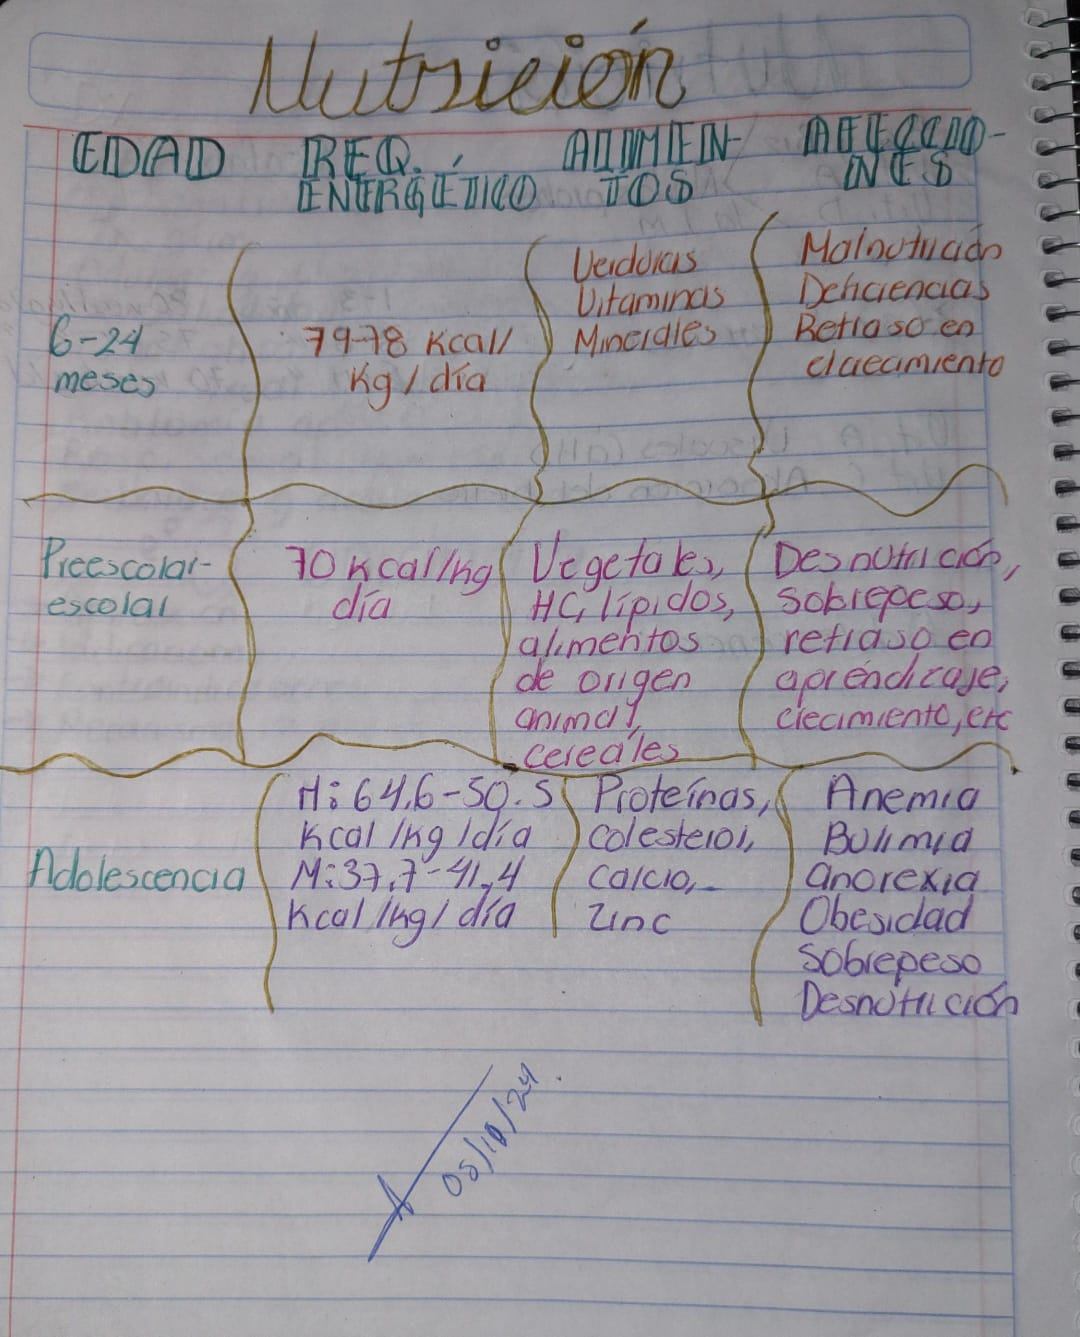 Nutrición
EDAD REQ. ENERGÉTICO ALIMEN-TOS AFECCIO-NES
6-24 meses
79-78 Kcal/
Kg/día
Verduras
Vitaminas
Minerales
Malnutrición
Deficiencias
Retraso en
crecimiento
Preescolar-
escolar
70 Kcal/kg
día
Vegetales,
HC, lípidos,
alimentos
de origen
animal,
cereales
Desnutrición,
sobrepeso,
retraso en
aprendizaje,
crecimiento, etc
Adolescencia
H: 64,6-50.5
Kcal/kg/día
M: 37,7-41,4
Kcal/kg/día
Proteínas,
colesterol,
calcio,
zinc
Anemia
Bulimia
anorexia
Obesidad
Sobrepeso
Desnutrición
05/10/24